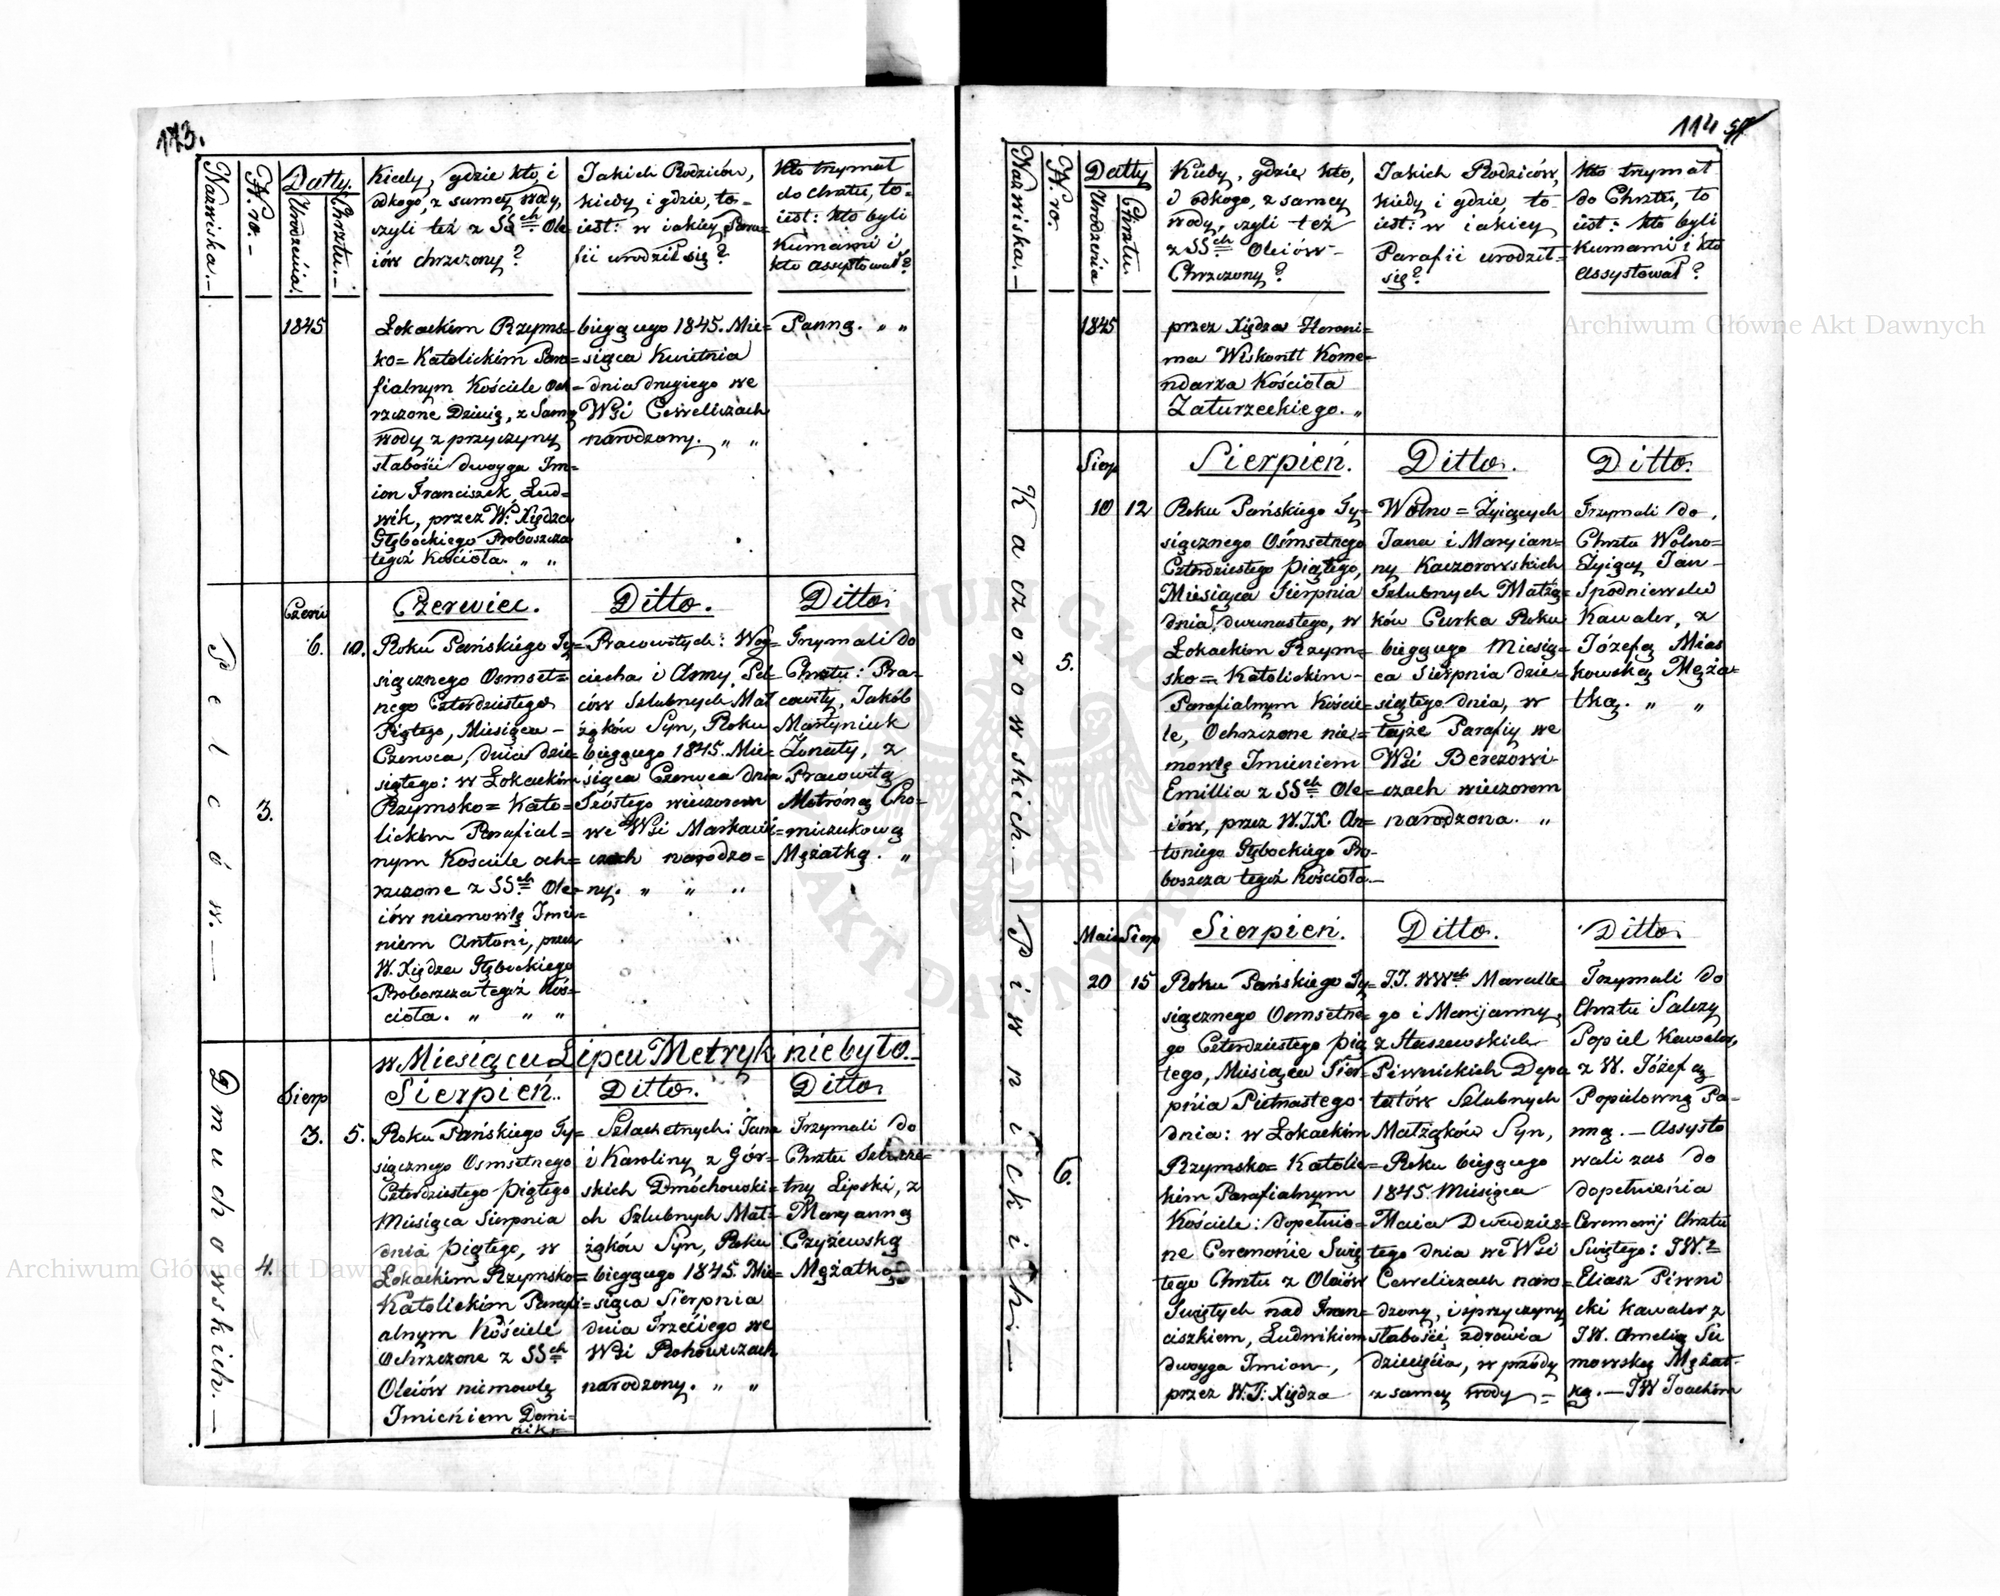 113.
Nazwiska.
N.ro.
Datty.
Urodzenia.
Chrztu.
Kiedy, gdzie kto, i
odkogo, z samey wody,
czyli też z SSch Ole
iów chrzczony?
Jakich Rodziców,
kiedy i gdzie, to-
iest: w iakiey Para-
fii urodził się?
Kto trzymał
do chrztu, to-
iest: kto byli
Kumami i
kto assystował?
1845
Łokackim Rzyms=
ko=Katolickim Para=
fialnym Kościele Och-
rzczone Dziecię, z Samey
wody z przyczyny
słabości dwoyga Im=
ion Franciszek, Lud=
wik, przez W: Xiędza
Głębockiego Proboszcza
tegoż Kościoła. „ „
biegącego 1845. Mie=
siąca Kwietnia
dnia drugiego we
Wsi Ceweliczach
narodzony. „ „
Panną. „ „
Pelców.
3.
Czerw
6.
10.
Czerwiec.
Roku Pańskiego Ty=
siącznego Osmset=
nego Czterdziestego
Piątego, Miesiąca-
Czerwca, dnia dzie=
siątego: w Łokackim
Rzymsko=Kato=
lickim Parafial=
nym Kościele och=
rzczone z SSch Ole=
iów niemowlę Imie=
niem Antoni, przez
W. Xiędza Głębockiego
Proboszcza tegoż Koś=
cioła. „ „ „
Ditto.
Pracowitych: Woy=
ciecha i Anny Pel=
ców Szlubnych Mał
żąków Syn, Roku
biegącego 1845. Mie=
siąca Czerwca dnia
Szóstego wieczorem
we Wsi Markowi=
czach narodzo=
ny. „ „ „
Ditto.
Trzymali do
Chrztu: Pra=
cowity, Jakób
Martyniuk
Żonaty, z
Pracowitą
Matróną Cho=
miczukową
Mężatką. „
w Miesiącu Lipcu Metryk niebyło.
Dmuchowskich.
4.
Sierp
3.
5.
Sierpień.
Roku Pańskiego Ty=
siącznego Osmsetnego
Czterdziestego piątego
Miesiąca Sierpnia
dnia piątego, w
Łokackim Rzymsko=
Katolickim Parafi=
alnym Kościele
Ochrzczone z SSch
Oleiów niemowlę
Imieniem Domi=
nik
Ditto.
Szlachetnych: Jana
i Karoliny z Gór=
skich Dmóchowski=
ch Szlubnych Mał=
żąków Syn, Roku
biegącego 1845. Mie=
siąca Sierpnia
dnia Trzeciego we
Wsi Rohowiczach
narodzony. „ „
Ditto
Trzymali do
Chrztu
Lipski, z
Maryanną
Czyżewską
Mężatką
114
Nazwiska.
N.ro.
Datty
Urodzenia
Chrztu.
Kiedy, gdzie kto,
i odkogo, z samey
wody, czyli też
z SSch Oleiów-
Chrzczony?
Jakich Rodziców,
kiedy i gdzie to-
iest: w iakiey
Parafii urodził=
się?
Kto trzymał
do Chrztu, to
iest: kto byli
Kumami i kto
assystował?
1845
przez Xiędza Heroni=
ma Wiskontt Kome=
ndarza Kościoła
Zaturzeckiego. „
Kaczorowskich.
5.
Sierp
10
12
Sierpień.
Roku Pańskiego Ty=
siącznego Ośmsetnego
Czterdziestego piątego,
Miesiąca Sierpnia
dnia, dwunastego, w
Łokackim Rzym=
sko=Katolickim-
Parafialnym Koście=
le, Ochrzczone nie=
mowlę Imieniem
Emillia z SSch Ole=
iów, przez W.JX. An=
toniego Głębockiego Pro-
boszcza tegoż Kościoła.
Ditto.
Wolno=Żyiących
Jana i Maryian=
ny Kaczorowskich
Szlubnych Małżą=
ków Curka Roku
biegącego Miesią=
ca Sierpnia dzie=
siątego dnia, w
teyże Parafiy we
Wsi Berezowi-
czach wieczorem
narodzona. „
Ditto.
Trzymali do
Chrztu Wolno=
Żyiący Jan-
Spodniewski
Kawaler, z
Józefą Mias
kowską Męża=
tką. „ „
Piwnickich
6.
Maia
Sierp
20
15
Sierpień.
Roku Pańskiego Ty=
siącznego Osmsetne=
go Czterdziestego pią
tego, Miesiąca Sier=
pnia Pietnastego
dnia: w Łokackim
Rzymsko=Katolic=
kim Parafialnym
Kościele: dopełnio=
ne Ceremonie Swię
tego Chrztu z Oleiów
Swiętych nad Fran=
ciszkiem, Ludwikiem
dwoyga Imion,
przez W.J: Xiędza
Ditto.
J.J. WWch Marcelle=
go i Marijanny,
z Staszewskich
Piwnickich Depu
tatów Szlubnych
Małżąków Syn,
Roku biegącego
1845. Miesiąca
Maia Dwudzies=
tego dnia we Wsi
Ceweliczach naro=
dzony, i z przyczyny
słabości zdrowia
dziecięcia, w przódy
z samey wody =
Ditto
Trzymali do
Chrztu
Popiel Kawaler,
z W. Józefą
Popielowną Pa=
nną. - Assysto
wali zas do
dopełnienia
Ceremonij Chrztu
Swiętego: JW.
Eliasz Piwni
cki Kawaler z
JW. Amelią Su
mowską Mężat-
ką. - JW Joachim
Archiwum Główne Akt Dawnych
Archiwum Główne Akt Dawnych
ARCHIWUM GŁÓWNE AKT DAWNYCH